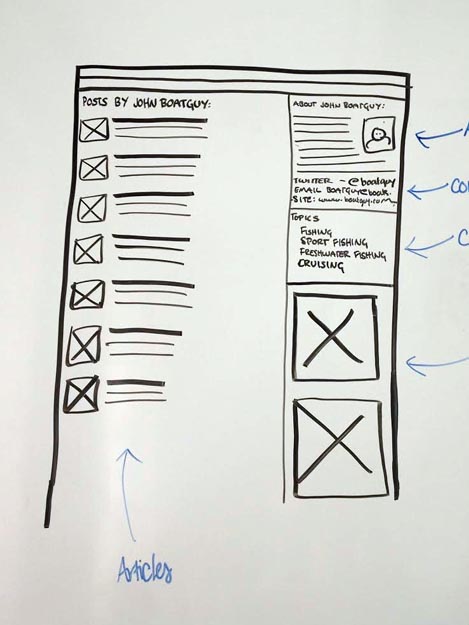 POSTS BY JOHN BOATGUY:
ABOUT JOHN BOATGUY:
TWITTER - @boatguy
SITE: www.boatguy.com
TOPICS
FISHING
SPORT FISHING
FRESHWATER FISHING
CRUISING
Articles